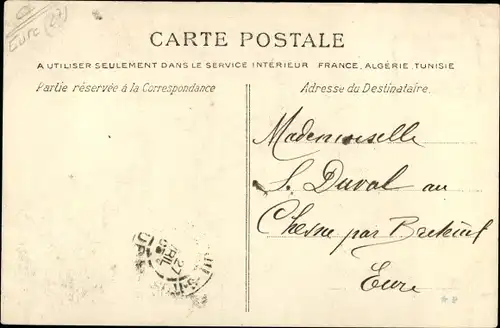 Eure (27)
CARTE POSTALE
A UTILISER SEULEMENT DANS LE SERVICE INTÉRIEUR FRANCE, ALGÉRIE, TUNISIE
Partie réservée à la Correspondance
Adresse du Destinataire.
Mademoiselle
S. Duval au
Chesne par Breteuil
Eure
27